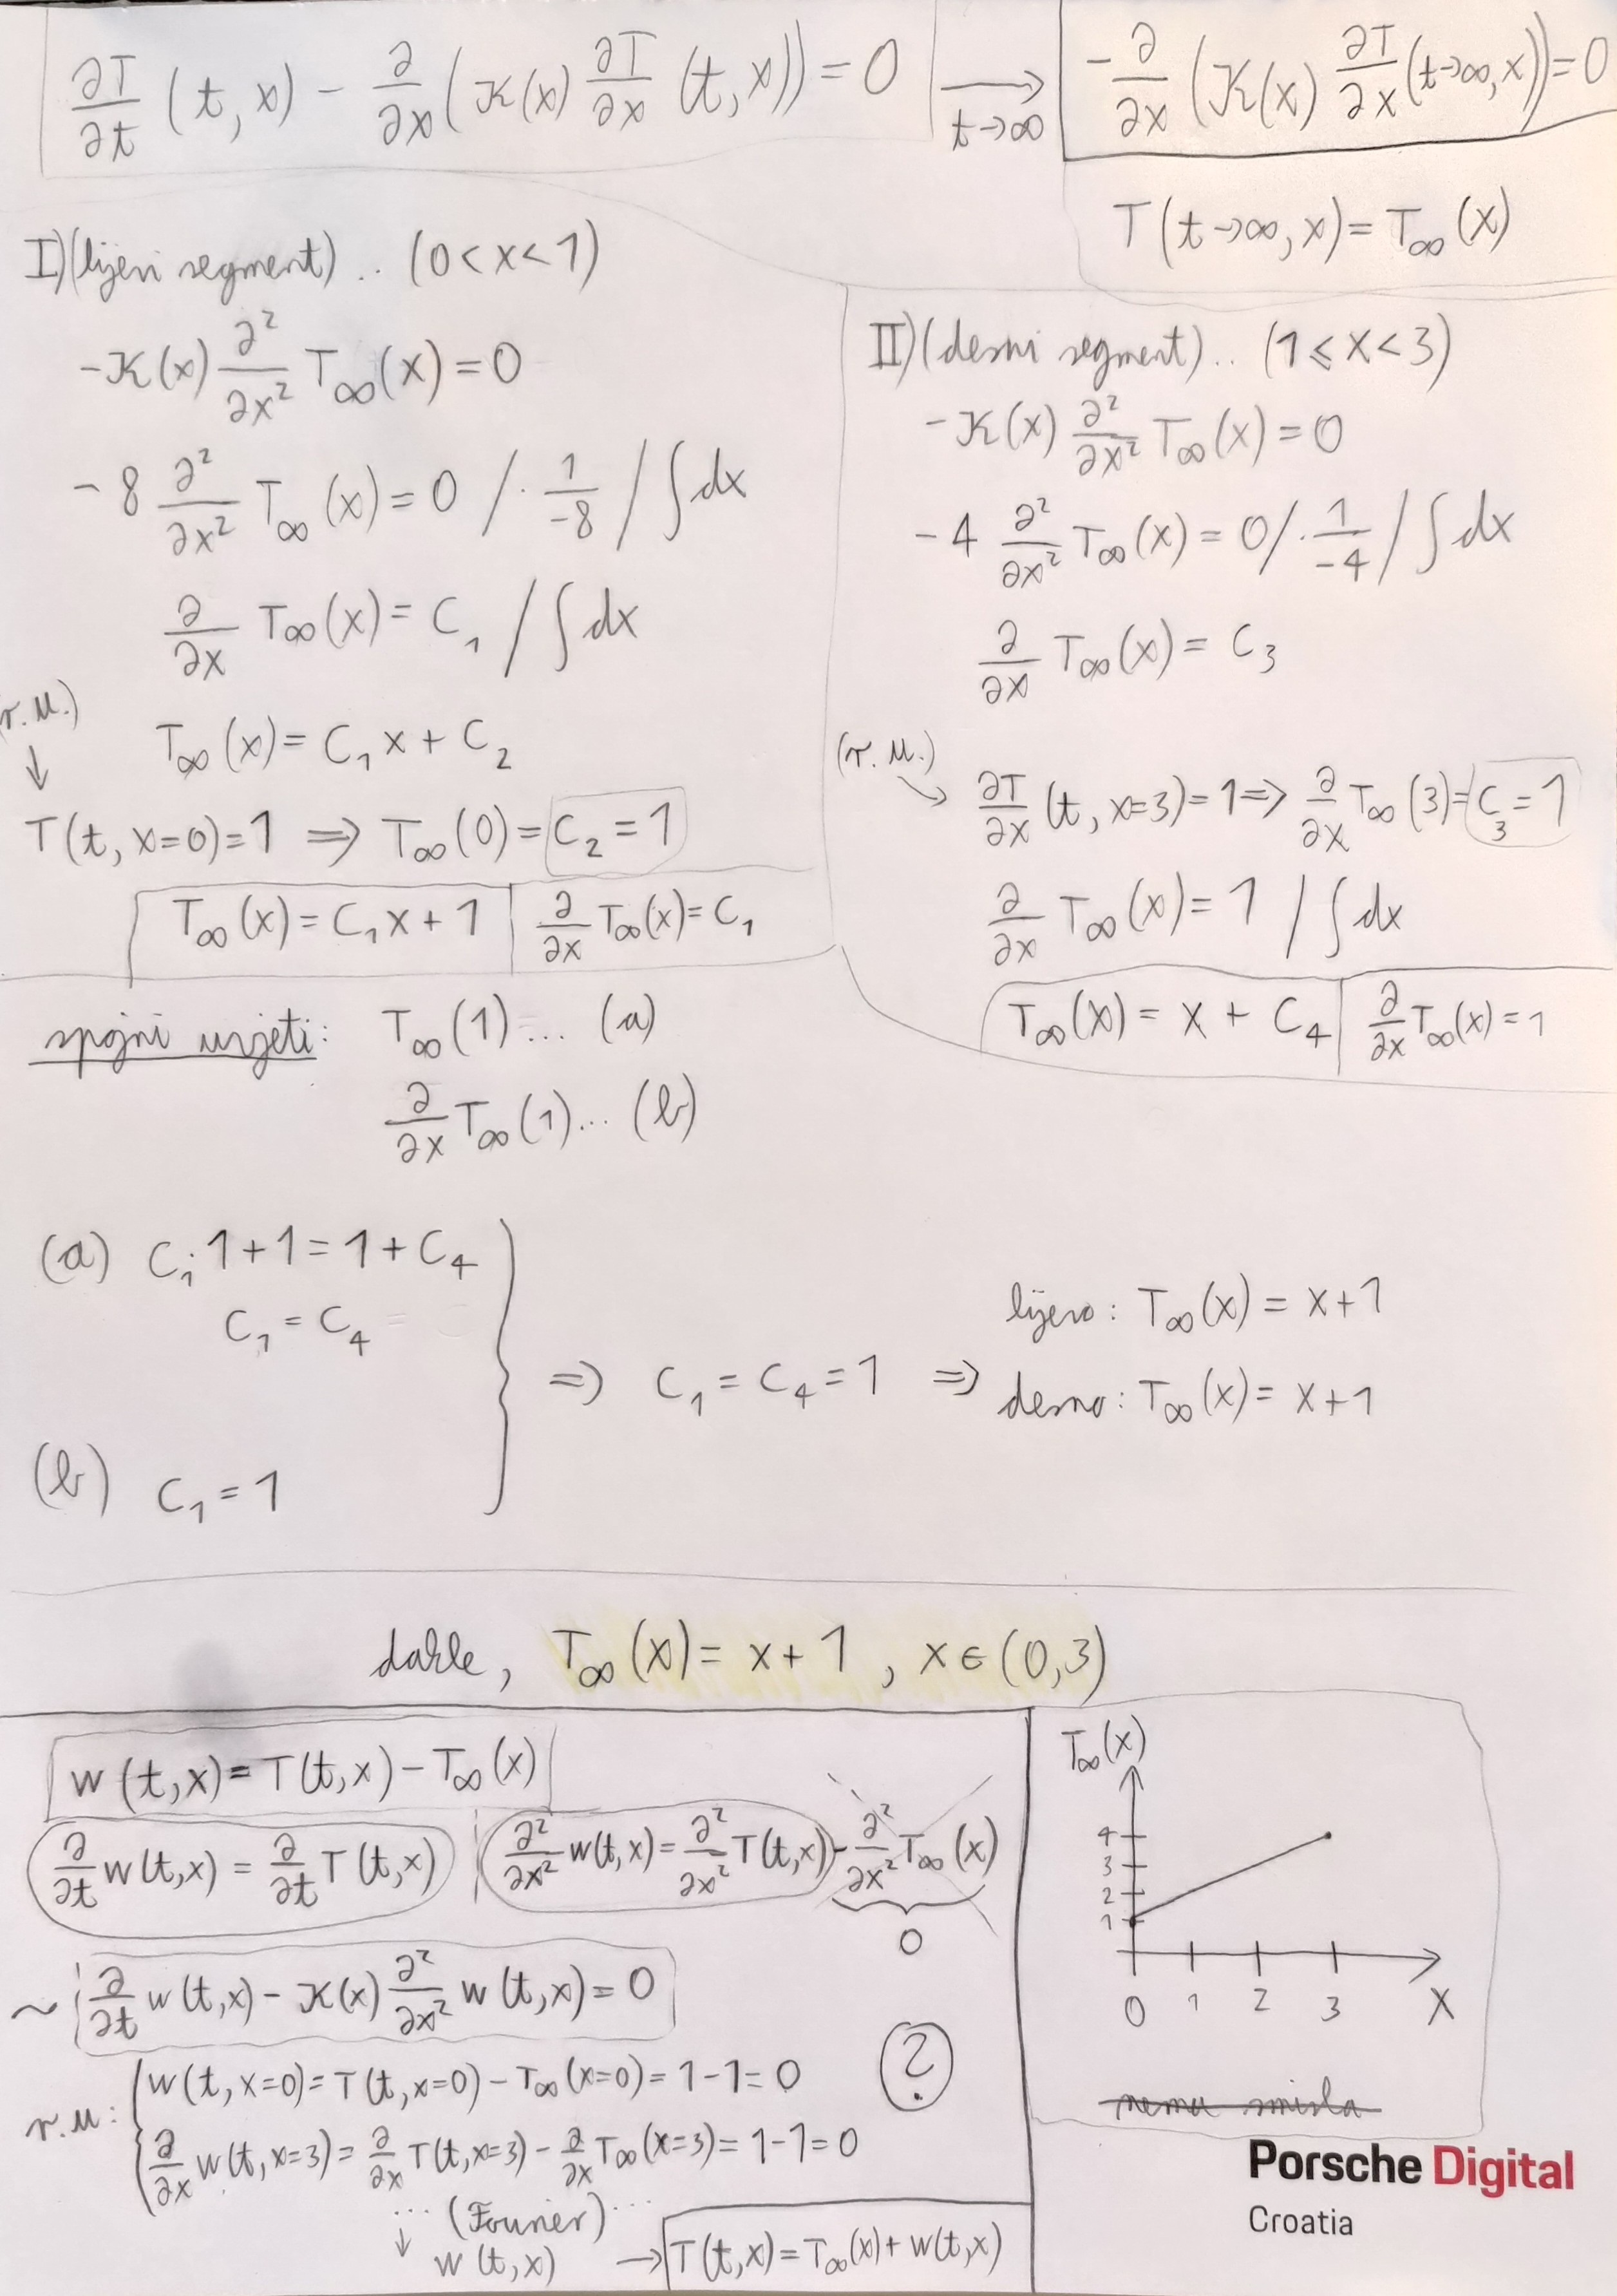 ∂T/∂t (t, x) - ∂/∂x (K(x) ∂T/∂x (t, x)) = 0 → t→∞ -∂/∂x (K(x) ∂T/∂x (t→∞, x)) = 0
T(t→∞, x) = T∞(x)
I) (lijevi segment) .. (0 < x < 1)
-K(x) ∂²/∂x² T∞(x) = 0
-8 ∂²/∂x² T∞(x) = 0 / · 1/-8 / ∫dx
∂/∂x T∞(x) = C₁ / ∫dx
(r.u.) ↓
T∞(x) = C₁x + C₂
T(t, x=0) = 1 ⇒ T∞(0) = C₂ = 1
T∞(x) = C₁x + 1 | ∂/∂x T∞(x) = C₁
II) (desni segment) .. (1 ⩽ x < 3)
-K(x) ∂²/∂x² T∞(x) = 0
-4 ∂²/∂x² T∞(x) = 0 / · 1/-4 / ∫dx
∂/∂x T∞(x) = C₃
(r.u.) ↘
∂T/∂x (t, x=3) = 1 ⇒ ∂/∂x T∞(3) = C₃ = 1
∂/∂x T∞(x) = 1 / ∫dx
T∞(x) = x + C₄ | ∂/∂x T∞(x) = 1
spojni uvjeti: T∞(1) ... (a)
∂/∂x T∞(1) ... (b)
(a) C₁·1 + 1 = 1 + C₄
C₁ = C₄
(b) C₁ = 1
⇒ C₁ = C₄ = 1 ⇒
lijevo: T∞(x) = x + 1
desno: T∞(x) = x + 1
dakle, T∞(x) = x + 1, x ∈ (0,3)
w(t,x) = T(t,x) - T∞(x)
∂/∂t w(t,x) = ∂/∂t T(t,x) | ∂²/∂x² w(t,x) = ∂²/∂x² T(t,x) - ∂²/∂x² T∞(x)
0
~ ∂/∂t w(t,x) - K(x) ∂²/∂x² w(t,x) = 0
?
r.u: w(t, x=0) = T(t, x=0) - T∞(x=0) = 1-1 = 0
∂/∂x w(t, x=3) = ∂/∂x T(t, x=3) - ∂/∂x T∞(x=3) = 1-1 = 0
... (Fourier) ...
↓ w(t,x) → T(t,x) = T∞(x) + w(t,x)
T∞(x)
4
3
2
1
0 1 2 3 X
nema smisla
Porsche Digital
Croatia